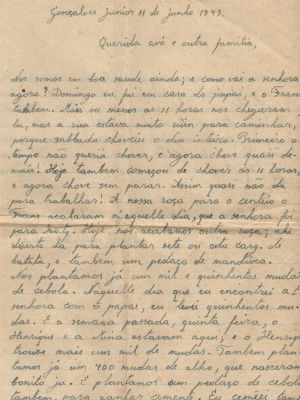 Gonçalves Junior 11 de junho 1943.
Querida avó e outra familia,
Nós somos em boa saude ainda; e como vai a senhora
agora? Domingo eu fui em casa do papai, e o Frans
tambem. Mais ou menos as 11 horas nós chegavam
la, mas a rua estava muito ruim para caminhar,
porque sabbado choveis o dia inteiro. Primeiro o
tempo não queria chover, e agora chove quasi de-
mais! Hoje tambem começou de chover ás 11 horas,
e agora chove sem parar. Assim quasi não da
para trabalhar! A nossa roça para o centeio o
Frans acabaram n'aquelle dia, que a senhora foi
para Iraty. Hoje nós acabamos outra roça; ahi
dicerto da para plantar sete ou oito carg. de
batata, e tambem um pedaço de mandioca.
Nos plantamos já um mil e quinhentos mudas
de cebola. Naquelle dia que eu encontrei at
senhora com ó papai, eu levei quinhentos mu-
das. E a semana passada, quinta feira, o
Henrique e a Nina estavam aqui; e o Henriq
trouxe mais um mil de mudas. Tambem plan-
tamos já um 400 mudas de alho, que nasceram
bonito ja. E plantamos um pedaço de cebola
tambem para ganhar semente. Eu semeei tam